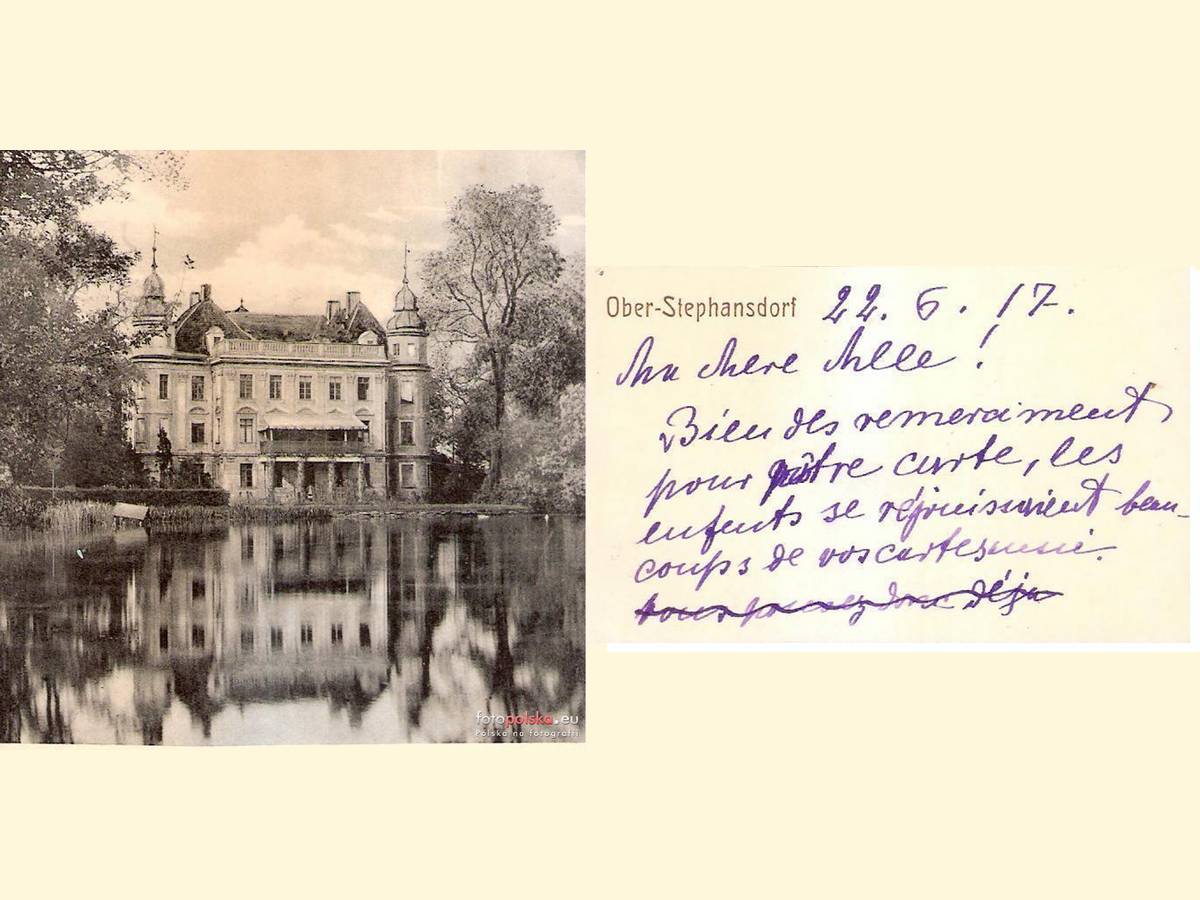 fotopolska.eu
Polska na fotografii
Ober-Stephansdorf 22. 6. 17.
Ma chere Mlle!
Bien des remerciment
pour vôtre carte, les
enfents se réjouissaient beau-
coups de vos cartes
déja